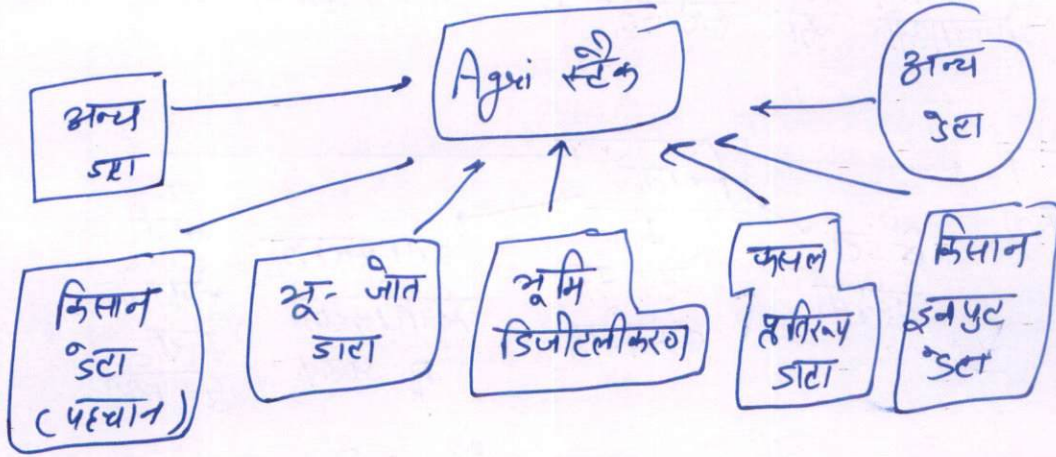 Agri स्टैक
अन्य
डाटा
अन्य
डेटा
किसान
डेटा
(पहचान)
भू- जोत
डाटा
भूमि
डिजीटलीकरण
फसल
प्रतिरूप
डाटा
किसान
इनपुट
डेटा